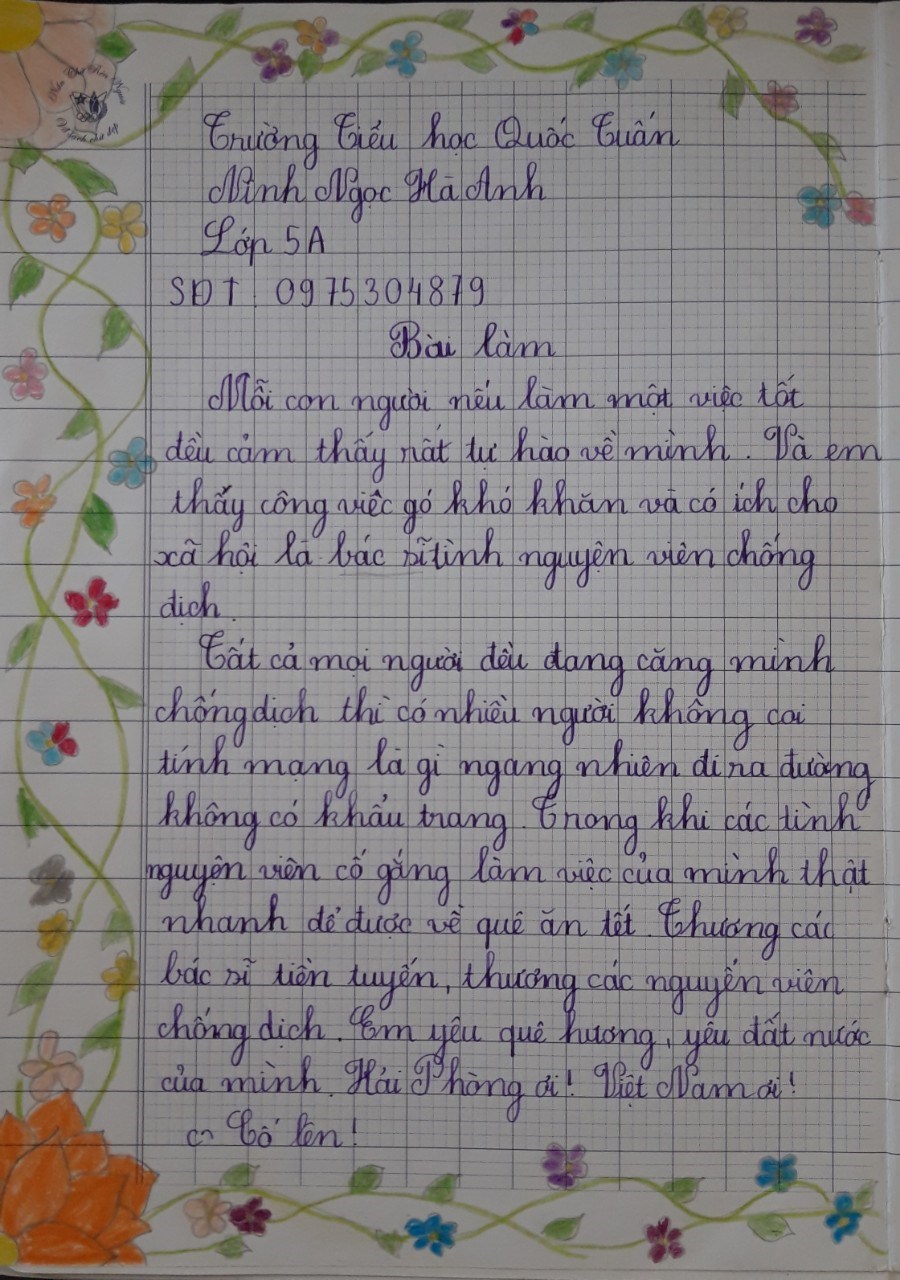 Trường Tiểu học Quốc Tuấn
Ninh Ngọc Hà Anh
Lớp 5A
SĐT: 0975304879
Bài làm
Mỗi con người nếu làm một việc tốt
đều cảm thấy rất tự hào về mình. Và em
thấy công việc gó khó khăn và có ích cho
xã hội là bác sĩ tình nguyện viên chống
dịch.
Tất cả mọi người đều đang căng mình
chống dịch thì có nhiều người không coi
tính mạng là gì ngang nhiên đi ra đường
không có khẩu trang. Trong khi các tình
nguyện viên cố gắng làm việc của mình thật
nhanh để được về quê ăn tết. Thương các
bác sĩ tiền tuyến, thương các nguyễn viên
chống dịch. Em yêu quê hương, yêu đất nước
của mình. Hải Phòng ơi! Việt Nam ơi!
Cố lên!